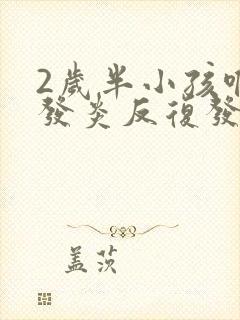 2歲半小孩
發炎反復發
蓋茨